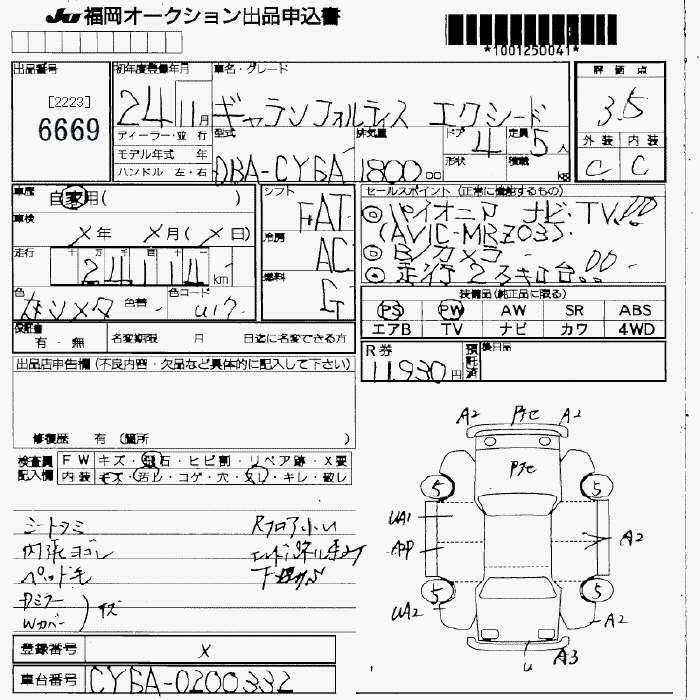 JU 福岡オークション出品申込書
*1001250041*
出品番号
[2223]
6669
初年度登録年月
24年 11月
ディーラー・並行
モデル年式 年
ハンドル 左・右
車名・グレード
ギャランフォルティス エクシード
型式
DBA-CY6A
排気量
1800 cc
ドア
4
定員
5人
形状
積載
kg
評価点
3.5
外装 内装
C C
車歴
自家用( )
車検
X年 X月(X日)
走行
十 万 千 百 十 一
24114 km
色
色替
色コード
U17
シフト
FAT
冷房
AC
燃料
G
セールスポイント (正常に機能するもの)
◎パイオニア ナビ・TV!!
(AVIC-MRZ03S
◎Bカメラ
◎走行2万キロ台!!
装備品(純正品に限る)
PS PW AW SR ABS
エアB TV ナビ カワ 4WD
保証書
有・無
名変期限 月 日迄に名変できる方
R券
11,930円
預託済
後日品
出品店申告欄(不良内容・欠品など具体的に記入して下さい)
修復歴 有 (箇所 )
検査員記入欄
FW キズ・飛石・ヒビ割・リペア跡・X要
内装 キズ・汚レ・コゲ・穴・スレ・キレ・破レ
シートスミ
内張ヨゴレ
ペット毛
Wカバー
キズ
Rフロア小U
A2 A2
5 5
UA1
APP
A2
5 5
UA2
A2
U A3
登録番号
X
車台番号
CY6A-0200332